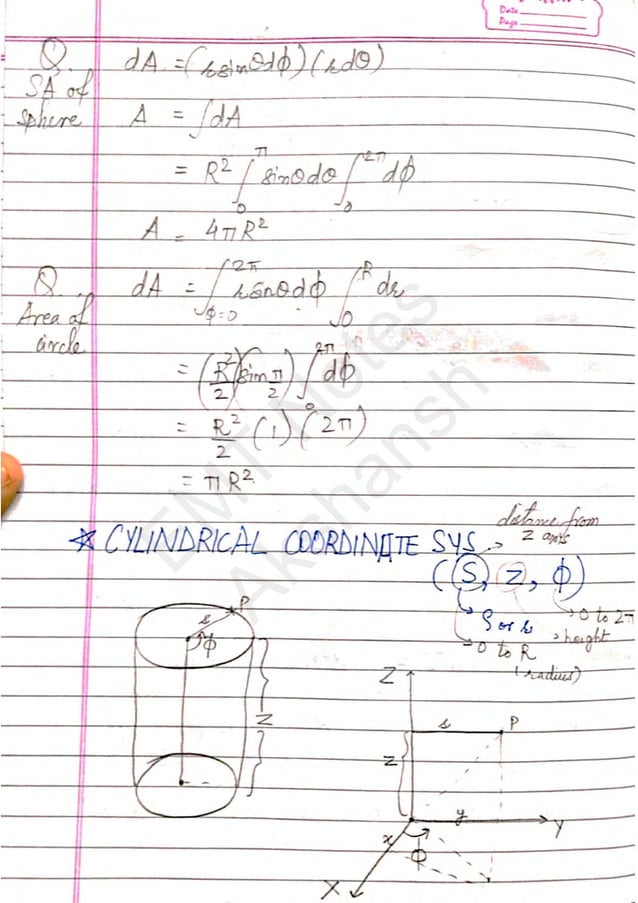 Date
Page
Q. SA of sphere
dA = (r sinθdϕ) (r dθ)
A = ∫dA
= R² ∫₀^π sinθ dθ ∫₀^2π dϕ
A = 4πR²
Q. Area of circle
dA = ∫_ϕ=0^2π r sinθ dϕ ∫₀^R dr
= (R²/2) (sin π/2) ∫₀^2π dϕ
= R²/2 (1) (2π)
= πR²
EMT Notes
Akshansh
* CYLINDRICAL COORDINATE SYS
distance from Z axis
(S, Z, ϕ)
ρ or r
0 to R
(radius)
height
0 to 2π
r
P
ϕ
Z
Z
s
P
Z
y
Y
x
ϕ
X